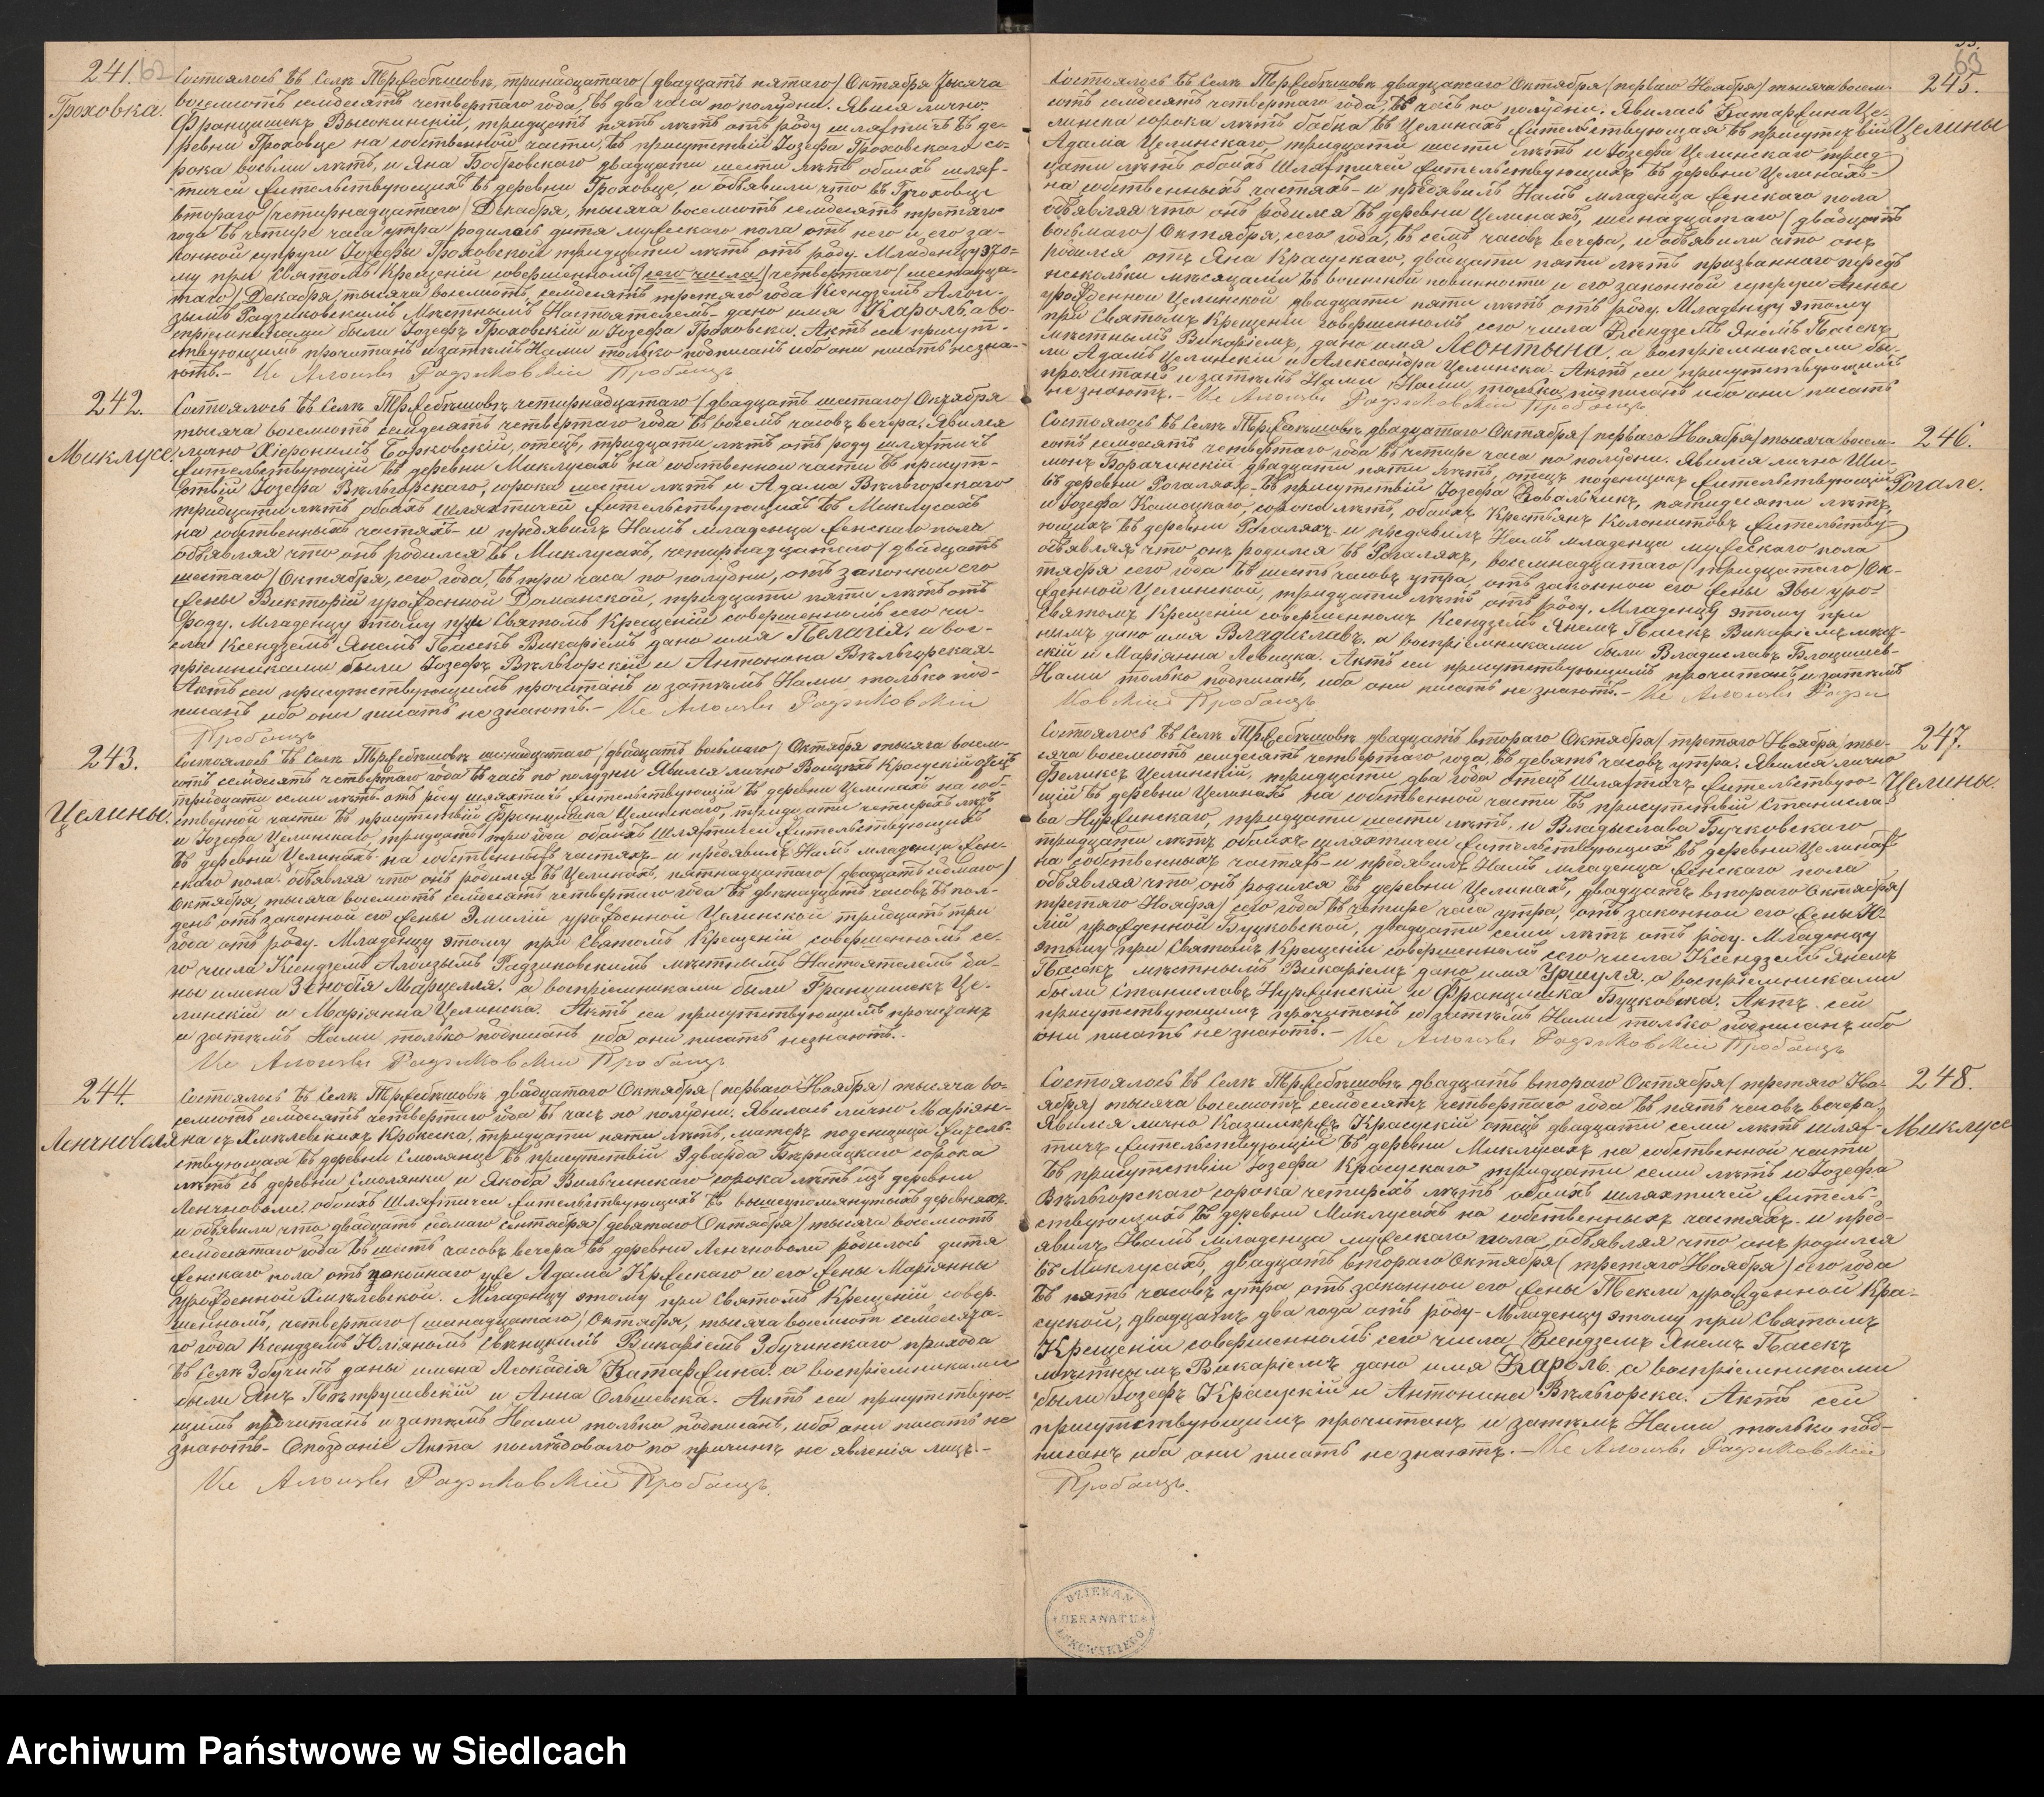 241.
62
Гроховка.
Состоялось въ Селѣ Тржебѣшовѣ, тринадцатаго /двадцать пятаго/ Октября тысяча
восемсотъ семдесятъ четвертаго года, въ два часа по полудни. Явился лично
Францишекъ Высокинскій, тридцать пять лѣтъ отъ роду шляхтичъ въ де-
ревни Гроховце на собственной части, въ присутствіи Іозефа Гроховскаго со-
рока восьми лѣтъ, и Яна Бобровскаго двадцати шести лѣтъ обоихъ шлях-
тичей жительствующихъ въ деревни Гроховце, и объявили что въ Гроховце
втораго /четырнадцатаго/ Декабря, тысяча восемсотъ семдесятъ третяго
года въ четыре часа утра родилось дитя мужескаго пола отъ него и его за-
конной супруги Іозефы Гроховской тридцати лѣтъ отъ роду. Младенцу это-
му при Святомъ Крещеніи совершенномъ /сего числа/ четвертаго /шестнадца-
таго/ Декабря, тысяча восемсотъ семдесятъ третяго года Ксендземъ Алои-
зымъ Радзиковскимъ Мѣстнымъ Настоятелемъ дано имя Кароль, а во-
спріемниками были Іозефъ Гроховскій и Іозефа Гроховска. Актъ сей присут-
ствующимъ прочитанъ и затѣмъ Нами только подписанъ ибо они писать незна-
ютъ.- Кс Алоизы Радзиковскій Пробощъ
242.
Миклусе.
Состоялось въ Селѣ Тржебѣшовѣ четырнадцатаго /двадцать шестаго/ Октября
тысяча восемсотъ семдесятъ четвертаго года въ восемь часовъ вечера. Явился
лично Хіеронимъ Борковскій, отецъ, тридцати лѣтъ отъ роду шляхтичъ
жительствующій въ деревни Миклусахъ на собственной части въ присут-
ствіи Іозефа Вѣльгорскаго, сорока шести лѣтъ и Адама Вѣльгорскаго
тридцати лѣтъ обоихъ шляхтичей жительствующихъ въ Миклусахъ
на собственныхъ частяхъ- и предявилъ Намъ младенца женскаго пола
объявляя что онъ родился въ Миклусахъ, четырнадцатаго /двадцать
шестаго/ Октября, сего года, въ три часа по полудни, отъ законной его
жены Викторіи урожденной Доманской, тридцати пяти лѣтъ отъ
роду. Младенцу этому при Святомъ Крещеніи совершенномъ сего чи-
сла Ксендземъ Янемъ Пасекъ Викаріемъ дано имя Пелагія, а вос-
пріемниками были Іозефъ Вѣльгорскій и Антонина Вѣльгорская.
Актъ сей присутствующимъ прочитанъ и затѣмъ Нами только под-
писанъ ибо они писать не знаютъ.- Кс Алоизы Радзиковскій
Пробощъ
243.
Целины.
Состоялось въ Селѣ Тржебѣшовѣ шеснадцатаго /двадцать восьмаго/ Октября тысяча восем-
сотъ семдесятъ четвертаго года въ часъ по полудни Явился лично Войцехъ Красускій отецъ
тридцати семи лѣтъ отъ роду шляхтичъ жительствующій въ деревни Целинахъ на соб-
ственной части въ присутствіи Францишка Целинскаго, тридцати четырехъ лѣтъ
и Іозефа Целинскаго, тридцать три года обоихъ Шляхтичей жительствующихъ
въ деревни Целинахъ на собственныхъ частяхъ- и предявилъ Намъ младенца жен-
скаго пола объявляя что онъ родился въ Целинахъ, пятнадцатаго /двадцать седмаго/
Октября, тысяча восемсотъ семдесятъ четвертаго года въ двѣнадцать часовъ въ пол-
день отъ законной его жены Эмиліи урожденной Целинской тридцать три
года отъ роду. Младенцу этому при Святомъ Крещеніи совершенномъ се-
го числа Ксендземъ Алоизымъ Радзиковскимъ мѣстнымъ Настоятелемъ да-
ны имена Зенобія Марцелля. а воспріемниками были Францишекъ Це-
линскій и Маріянна Целинска. Актъ сей присутствующимъ прочитанъ
и затѣмъ Нами только подписанъ ибо они писать незнаютъ.
Кс Алоизы Радзиковскій Пробощъ
244.
Ленчноволя
Состоялось въ Селѣ Тржебѣшовѣ двадцатаго Октября /перваго Ноября/ тысяча во-
семсотъ семдесятъ четвертаго года въ часъ по полудни. Явилась лично Маріян-
на съ Хмѣлевскихъ Кржеска, тридцати пяти лѣтъ, матерь поденщица житель-
ствующая въ деревни Смолянце въ присутствіи Эдварда Бѣрнацкаго сорока
лѣтъ съ деревни Смолянки и Якоба Вильчинскаго сорока лѣтъ изъ деревни
Ленчноволи, обоихъ Шляхтичей жительствующихъ въ вышеупомянутыхъ деревняхъ
и объявили что двадцать седмаго Сентября /девятаго Октября/ тысяча восемсотъ
семдесятаго года въ шесть часовъ вечера въ деревни Ленчноволи родилось дитя
женскаго пола отъ покойнаго уже Адама Кржескаго и его жены Маріянны
урожденной Хмѣлевской. Младенцу этому при Святомъ Крещеніи совер-
шенномъ, четвертаго /шеснадцатаго/ Октября, тысяча восемсотъ семдесята-
го года Ксендземъ Юліяномъ Викаріемъ Збучинскаго прихода
въ Селѣ Збучинѣ даны имена Леокадія Катаржина. а воспріемниками
были Янъ Пѣтрушевскій и Анна Ольшевска. Актъ сей присутствую-
щимъ прочитанъ и затѣмъ Нами только подписанъ, ибо они писать не
знаютъ- Опозданіе Акта послѣдовало по причинѣ не явленія лицъ.-
Кс Алоизы Радзиковскій Пробощъ.
63
245.
Целины
Состоялось въ Селѣ Тржебѣшовѣ двадцатаго Октября /перваго Ноября/ тысяча восем-
сотъ семдесятъ четвертаго года, въ часъ по полудни. Явилась Катаржина Це-
линска сорока лѣтъ бабка въ Целинахъ жительствующая въ присутствіи
Адама Целинскаго, тридцати шести лѣтъ и Іозефа Целинскаго трид-
цати лѣтъ обоихъ Шляхтичей жительствующихъ въ деревни Целинахъ-
на собственныхъ частяхъ- и предявилъ Намъ младенца женскаго пола
объявляя что онъ родился въ деревни Целинахъ, шеснадцатаго /двадцать
восьмаго/ Октября, сего года, въ семь часовъ вечера, и объявили что онъ
родился отъ Яна Красускаго, двадцати пяти лѣтъ призваннаго передъ
нѣсколькы мѣсяцами въ воинской повинности и его законной супруги Анны
урожденной Целинской двадцати пяти лѣтъ отъ роду. Младенцу этому
при Святомъ Крещеніи совершенномъ сего числа Ксендземъ Янемъ Пасекъ
мѣстнымъ Викаріемъ, дано имя Леонтына, а воспріемниками бы-
ли Адамъ Целинскій и Александра Целинска. Актъ сей присутствующимъ
прочитанъ и затѣмъ Нами Нами только подписанъ ибо они писать
не знаютъ.- Кс Алоизы Радзиковскій Пробощъ
246.
Рогале.
Состоялось въ Селѣ Тржебѣшовѣ двадцатаго Октября /перваго Ноября/ тысяча восем-
сотъ семдесятъ четвертаго года въ четыре часа по полудни. Явился лично Ши-
монъ Борачинскій двадцати пяти лѣтъ, отецъ поденщикъ жительствующій
въ деревни Рогаляхъ- въ присутствіи Іозефа Ковальчикъ, пятидесяти лѣтъ,
и Іозефа Комоцкаго, сорока лѣтъ, обоихъ Крестьянъ Колонистовъ жительству-
ющихъ въ деревни Рогаляхъ- и предявилъ Намъ младенца мужескаго пола
объявляя что онъ родился въ Рогаляхъ, восемнадцатаго /тридцатаго/ Ок-
тября сего года въ шесть часовъ утра, отъ законной его жены Эвы уро-
жденной Целинской, тридцати лѣтъ отъ роду. Младенцу этому при
Святомъ Крещеніи совершенномъ Ксендземъ Янемъ Пасекъ Викаріемъ мѣст-
нымъ дано имя Владиславъ, а воспріемниками были Владиславъ
скій и Маріянна Левицка. Актъ сей присутствующимъ прочитанъ и затѣмъ
Нами только подписанъ, ибо они писать не знаютъ.- Кс Алоизы Радзи
ковскій Пробощъ
247.
Целины.
Состоялось въ Селѣ Тржебѣшовѣ двадцать втораго Октября /третяго Ноября/ ты-
сяча восемсотъ семдесятъ четвертаго года, въ девять часовъ утра. Явился лично
Феликсъ Целинскій, тридцати два года отецъ Шляхтичъ жительствую-
щій въ деревни Целинахъ на собственной части въ присутствіи Станисла-
ва Нуржинскаго, тридцати шести лѣтъ, и Владыслава Бучковскаго
тридцати лѣтъ обоихъ шляхтичей жительствующихъ въ деревни Целинахъ
на собственныхъ частяхъ- и предявилъ Намъ младенца женскаго пола
объявляя что онъ родился въ деревни Целинахъ, двадцать втораго Октября/
третяго Ноября/ сего года въ четыре часа утра, отъ законной его жены Ю-
ліи урожденной Буцковской, двадцати семи лѣтъ отъ роду. Младенцу
этому при Святомъ Крещеніи совершенномъ сего числа Ксендземъ Янемъ
Пасекъ мѣстнымъ Викаріемъ дано имя Уршуля, а воспріемниками
были Станиславъ Нуржинскій и Францишка Буцковска. Актъ сей
присутствующимъ прочитанъ и затѣмъ Нами только подписанъ ибо
они писать не знаютъ.- Кс Алоизы Радзиковскій Пробощъ
248.
Миклусе
Состоялось въ Селѣ Тржебѣшовѣ двадцать втораго Октября /третяго Но-
ября/ тысяча восемсотъ семдесятъ четвертаго года въ пять часовъ вечера,
Явился лично Казимержъ Красускій отецъ двадцати семи лѣтъ шлях-
тичъ жительствующій въ деревни Миклусахъ на собственной части
въ присутствіи Іозефа Красускаго тридцати семи лѣтъ и Іозефа
Вѣльгорскаго сорока четырехъ лѣтъ обоихъ шляхтичей житель-
ствующихъ въ деревни Миклусахъ на собственныхъ частяхъ- и пред-
явилъ Намъ младенца мужескаго пола, объявляя что онъ родился
въ Миклусахъ, двадцать втораго Октября /третяго Ноября/ сего года
въ пять часовъ утра, отъ законной его жены Текли урожденной Кра-
суской, двадцать два года отъ роду- Младенцу этому при Святомъ
Крещеніи совершенномъ сего числа Ксендземъ Янемъ Пасекъ
мѣстнымъ Викаріемъ дано имя Кароль а воспріемниками
были Іозефъ Красускій и Антонина Вѣльгорска. Актъ сей
присутствующимъ прочитанъ и затѣмъ Нами только под-
писанъ ибо они писать не знаютъ.- Кс Алоизы Радзиковскій
Пробощъ.
DZIEKAN
DEKANATU
ŁUKOWSKIEGO
Archiwum Państwowe w Siedlcach